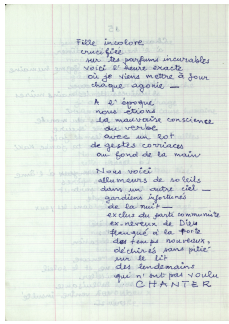 Fille incolore
crucifiée
sur les parfums incurables
voici l'heure exacte
où je viens mettre à jour
chaque agonie —
A l'époque
nous étions
la mauvaise conscience
du verbe
avec un lot
de gestes coriaces
au fond de la main
Nous voici
allumeurs de soleils
dans un autre ciel —
gardiens infortunés
de la nuit —
exclus du parti communiste
ex-neveux de Dieu
flanqué à la porte
des temps nouveaux,
déchirés sans pitié
sur le lit
des lendemains
qui n'ont pas voulu
CHANTER